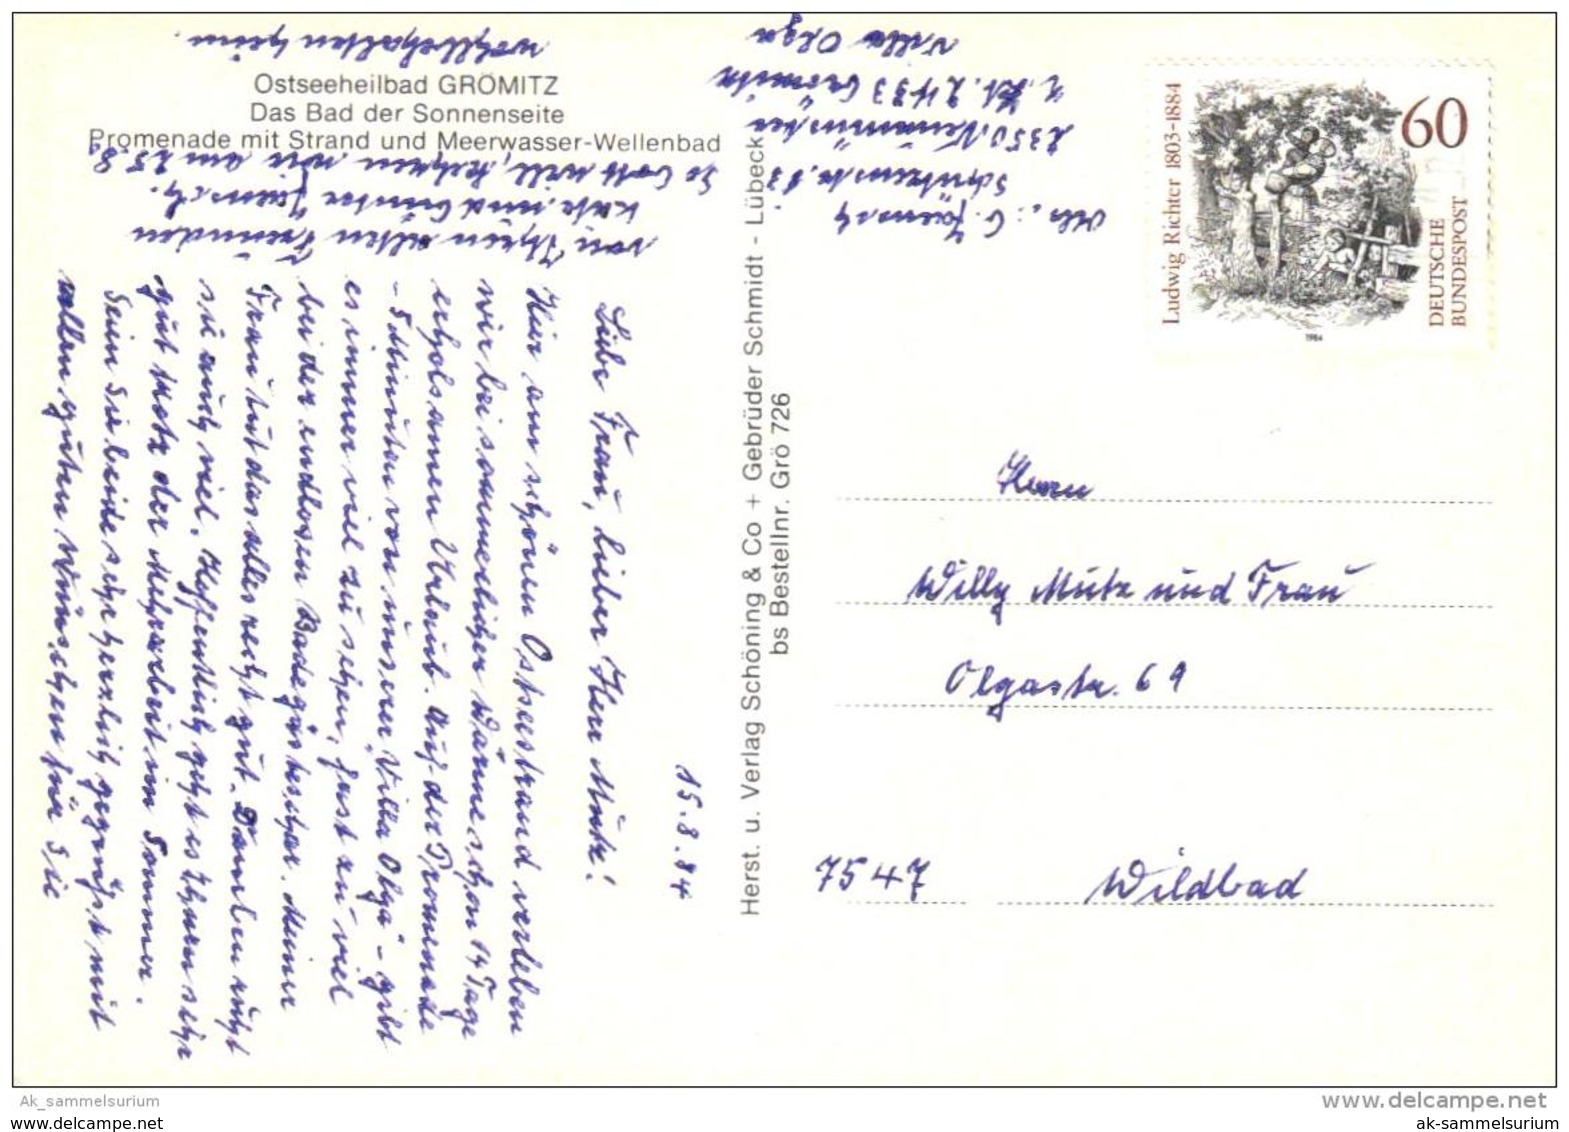 Ostseeheilbad GRÖMITZ
Das Bad der Sonnenseite
Promenade mit Strand und Meerwasser-Wellenbad
15.8.84
Liebe Frau, lieber Herr Mutz!
Hier am schönen Ostseestrand verleben
wir bei sommerlicher Wärme schon 14 Tage
erholsamen Urlaub. Auf der Promenade
- 5 Minuten von unserer „Villa Olga" - gibt
es immer viel zu sehen, fast zu viel
bei der endlosen Badegästeschar. Meiner
Frau tut das alles recht gut. Daneben ruht
sie auch viel. Hoffentlich geht es Ihnen sehr
gut trotz der Mehrarbeit im Sommer.
Seien Sie beide sehr herzlich gegrüßt mit
allen guten Wünschen für Sie
von Ihren alten Freunden
Käte und Günter Jaensch.
So Gott will, kehren wir am 25.8.
wohlbehalten heim.
Abs.: G. Jaensch
Schützenstr. 83
2350 Neumünster
z. Zt. 2433 Grömitz
Villa Olga
Herst. u. Verlag Schöning & Co + Gebrüder Schmidt - Lübeck
bs Bestellnr. Grö 726
Ludwig Richter 1803-1884
60
DEUTSCHE
BUNDESPOST
1984
Herrn
Willy Mutz und Frau
Olgastr. 69
7547 Wildbad
Ak_sammelsurium
www.delcampe.net
www.ak-sammelsurium.de
ak-sammelsurium